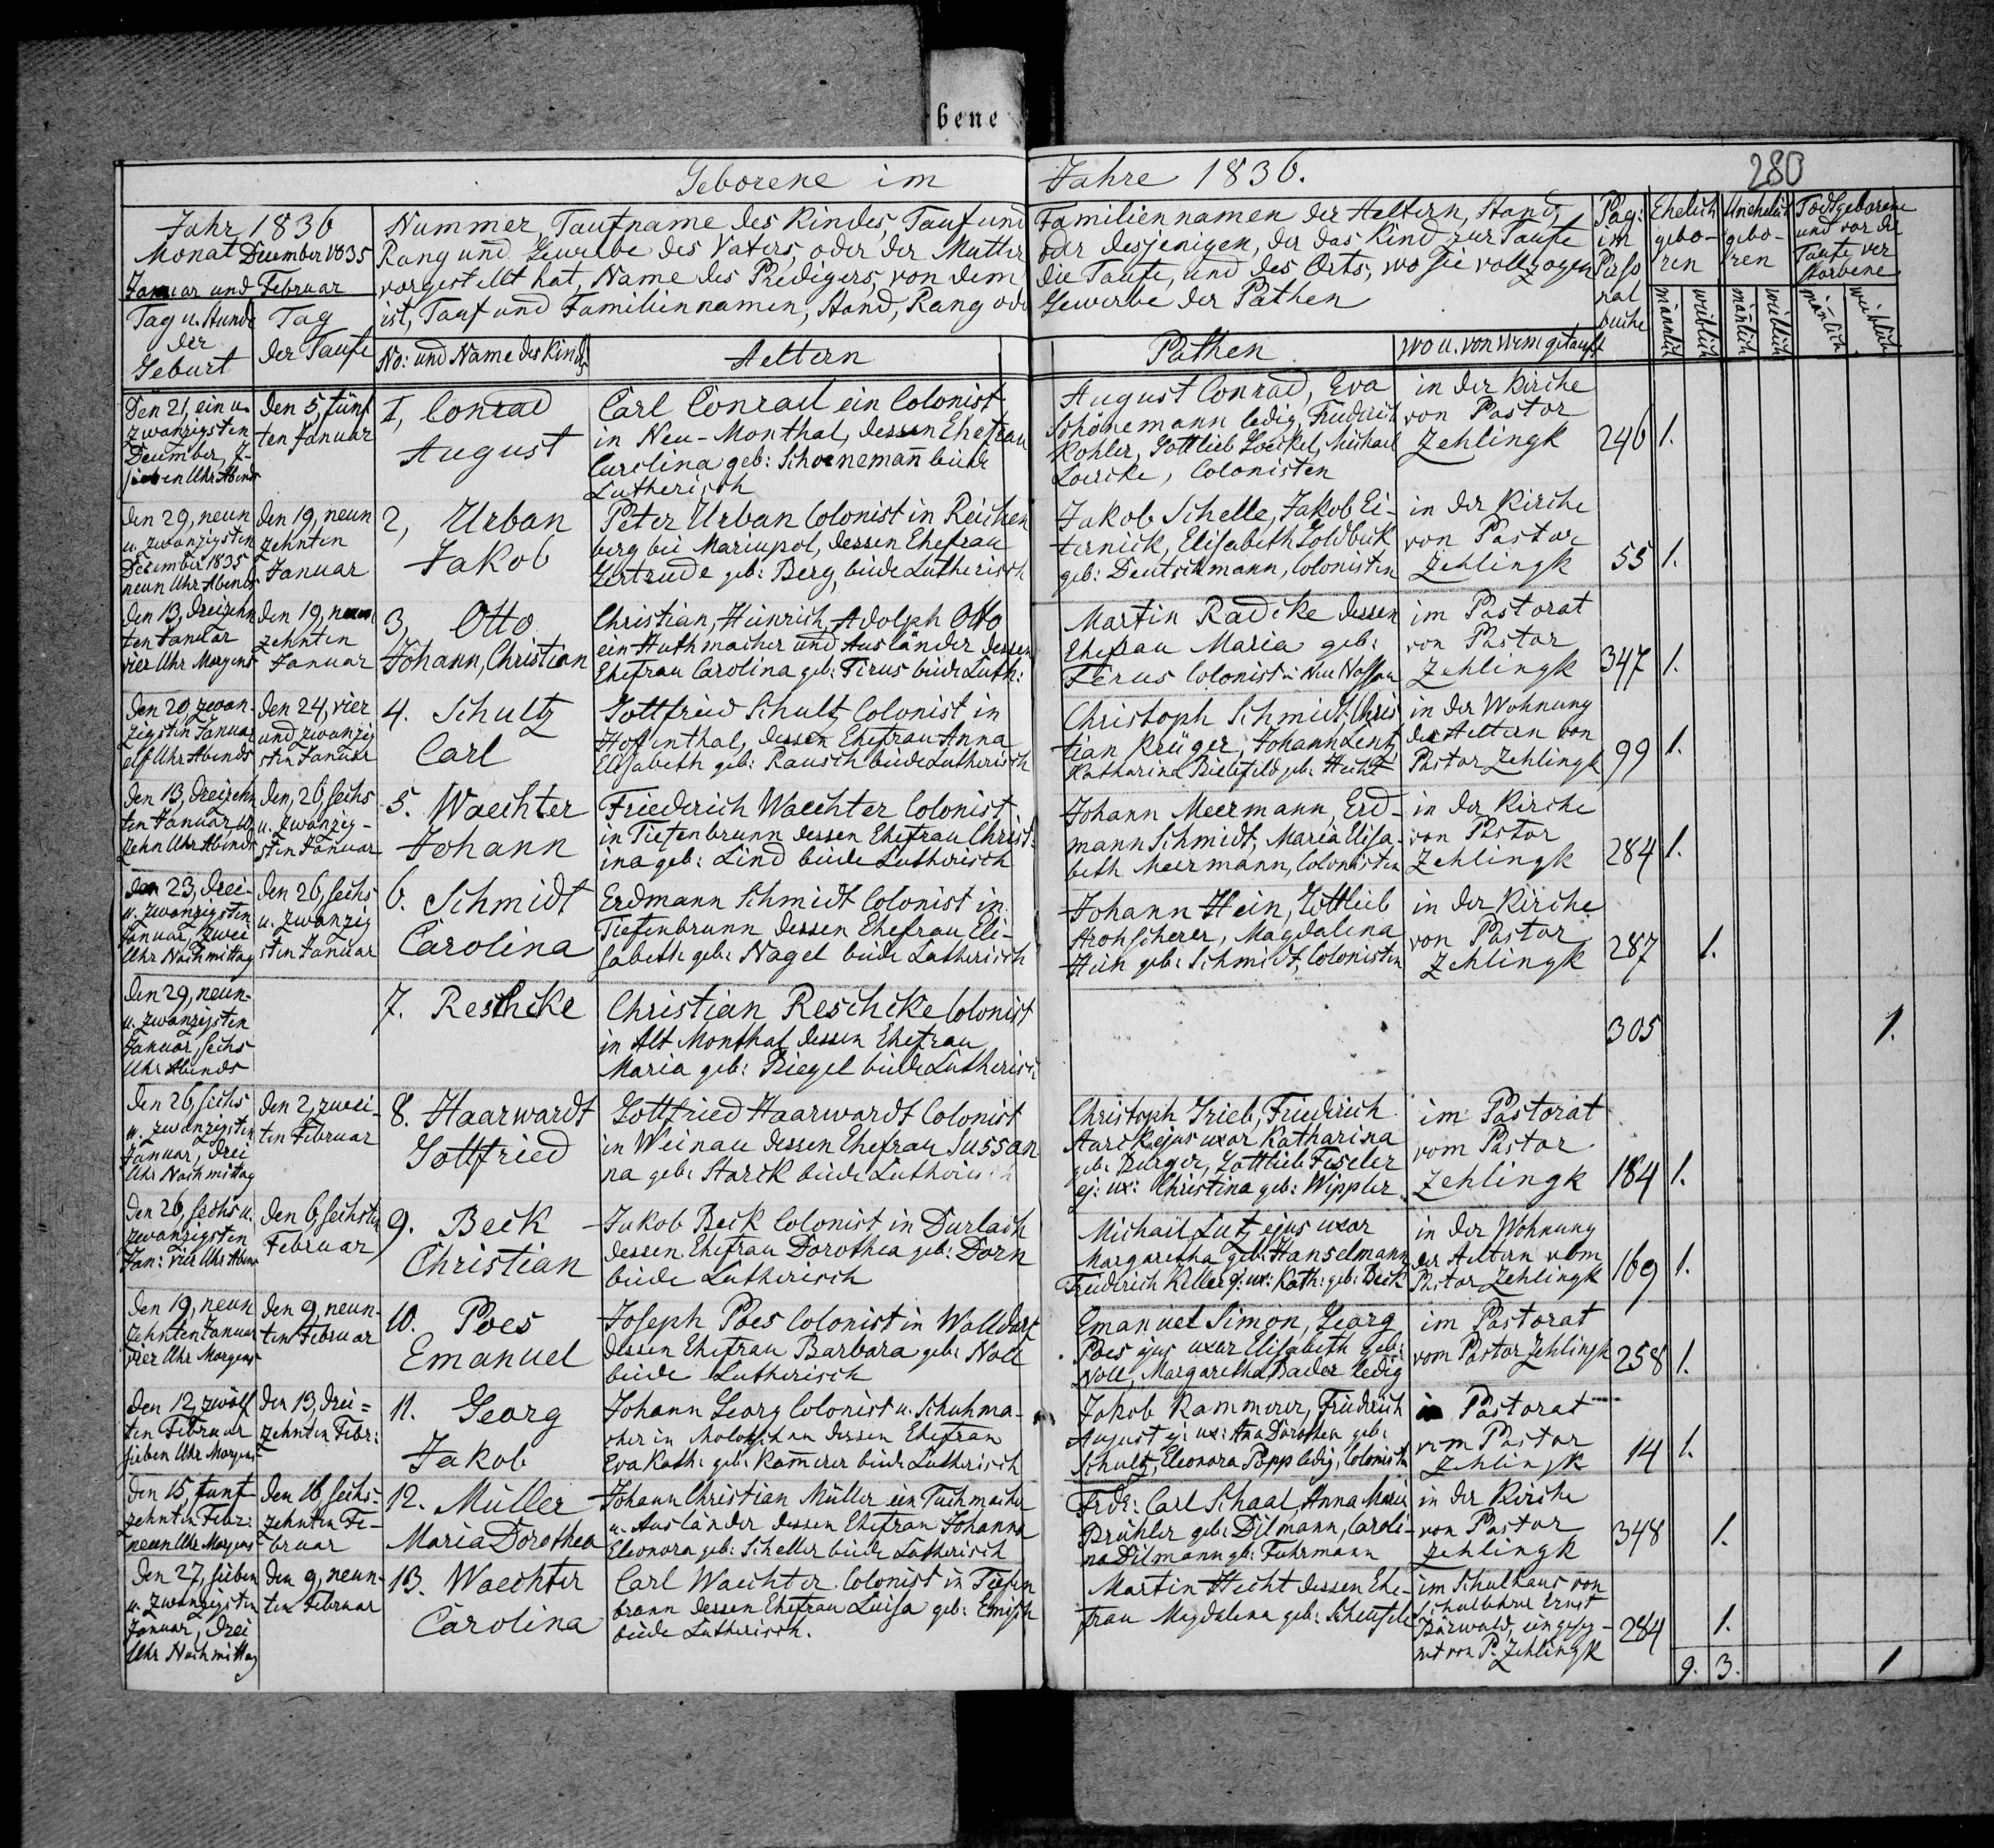 bene
Geborene im Jahre 1836.
280
Jahr 1836
Monat December 1835
Januar und Februar
Nummer, Taufname des Kindes, Tauf und Familiennamen der Aeltern, Stand,
Rang und Gewerbe des Vaters, oder der Mutter oder desjenigen, der das Kind zur Taufe
vorgestellt hat, Name des Predigers, von dem die Taufe, und des Orts, wo sie vollzogen
ist, Tauf und Familiennamen, Stand, Rang oder Gewerbe der Pathen
Pag:
im
Perso
nal
buche
Ehelich
gebo-
ren
Unehelich
gebo-
ren
Todtgeborene
und vor der
Taufe ver
storbene
männlich
weiblich
mänlich
weiblich
mänlich
weiblich
Tag u. Stunde
der
Geburt
Tag
der Taufe
No: und Name des Kindes
Aeltern
Pathen
wo u. von wem getauft
Den 21, ein u.
zwanzigsten
December, 7-
sieben Uhr Abends
den 5, fünf
ten Januar
1, Conrad
August
Carl Conrad ein Colonist
in Neu-Monthal, dessen Ehefrau
Carolina geb: Schoenemañ beide
Lutherisch
August Conrad, Eva
Schönemann ledig, Friederich
Kohler, Gottlieb Michael
Colonisten
in der Kirche
von Pastor
Zehlingk
246
1.
den 29, neun
u. zwanzigsten
December 1835
neun Uhr Abends
den 19, neun
zehnten
Januar
2, Urban
Jakob
Peter Urban Colonist in Reichen
berg bei Mariupol, dessen Ehefrau
Gertrude geb: Berg, beide Lutherisch
Jakob Schelle, Jakob Ei-
ternick, Elisabeth Goldbeck
geb: Deutschmann, Colonisten
in der Kirche
von Pastor
Zehlingk
55
1.
den 13, dreizehn
ten Januar
vier Uhr Morgens
den 19, neun
zehnten
Januar
3, Otto
Johann, Christian
Christian, Heinrich, Adolph Otto
ein Huthmacher und Ausländer dessen
Ehefrau Carolina geb: Ferus beide Luth:
Martin Radcke dessen
Ehefrau Maria geb:
Ferus Colonist in Neu Nassau
im Pastorat
von Pastor
Zehlingk
347
1.
den 20, zwan-
zigsten Januar
elf Uhr Abends
den 24, vier
und zwanzig
sten Januar
4. Schultz
Carl
Gottfried Schultz Colonist in
Hoffenthal, dessen Ehefrau Anna
Elisabeth geb: Rausch beide Lutherisch
Christoph Schmidt, Chris
tian Krüger, Johann Lentz
Katharina Bielefeld geb: Hecht
in der Wohnung
der Aeltern von
Pastor Zehlingk
99
1.
den 13, dreizehn
ten Januar
zehn Uhr Abends
den, 26, sechs
u. zwanzig-
sten Januar
5. Waechter
Johann
Friederich Waechter Colonist
in Tiefenbrunn dessen Ehefrau Christ:
ina geb: Lind beide Lutherisch
Johann Meermann, Erd-
mann Schmidt, Maria Elisa-
beth Meermann, Colonisten
in der Kirche
von Pastor
Zehlingk
284
1.
den 23, drei-
u. zwanzigsten
Januar, zwei
Uhr Nachmittag
den 26, sechs
u. zwanzig
sten Januar
6. Schmidt
Carolina
Erdmann Schmidt Colonist in
Tiefenbrunn dessen Ehefrau Eli-
sabeth geb: Nagel beide Lutherisch
Johann Hein, Gottlieb
Strohscherer, Magdalena
Hein geb: Schmidt, Colonisten
in der Kirche
von Pastor
Zehlingk
287
1.
den 29, neun-
u. zwanzigsten
Januar, sechs
Uhr Abends
7. Reschcke
Christian Reschcke Colonist
in Alt Monthal dessen Ehefrau
Maria geb: Riegel beide Lutherisch
305
1.
den 26, sechs
u. zwanzigsten
Januar, drei
Uhr Nachmittag
den 2, zwei-
ten Februar
8. Haarwardt
Gottfried
Gottfried Haarwardt Colonist
in Weinau dessen Ehefrau Sussan
na geb: Starck beide Lutherisch
Christoph Grieb, Friederich
Starck ejus uxor Katharina
geb: Burger, Gottlieb Feseler
ej: ux: Christina geb: Wippler
im Pastorat
vom Pastor
Zehlingk
184
1.
den 26, sechs u.
zwanzigsten
Jan: vier Uhr Abend
den 6, sechsten
Februar
9. Beck
Christian
Jakob Beck Colonist in Durlach
dessen Ehefrau Dorothea geb: Dorn
beide Lutherisch
Michail Lutz ejus uxor
Margaretha geb: Hanselmann
Friederich Keller ej: ux: Kath: geb: Beck
in der Wohnung
der Aeltern vom
Pastor Zehlingk
169
1.
den 19, neun
zehnten Januar
vier Uhr Morgens
den 9, neun-
ten Februar
10. Poes
Emanuel
Joseph Poes Colonist in Walldorf
dessen Ehefrau Barbara geb: Noll
beide Lutherisch
Emanuel Simon, Georg
Poes ejus uxor Elisabeth geb:
Noll, Margaretha Bader ledig
im Pastorat
vom Pastor Zehlingk
258
1.
den 12, zwölf
ten Februar
sieben Uhr Morgens
der 13, drei=
zehnten Febr:
11. Georg
Jakob
Johann Georg Colonist u. Schuhma-
cher in Molotschna dessen Ehefrau
Eva Kath: geb: Kam̄erer beide Lutherisch
Jakob Kammerer, Friedrich
August ej: ux: Ana Dorothea geb:
Schultz, Eleonora Popp ledig, Colonisten
im Pastorat
vom Pastor
Zehlingk
14
1.
den 15, funf
zehnten Febr:
neun Uhr Morgens
den 16, sechs-
zehnten Fe-
bruar
12. Müller
Maria Dorothea
Johann Christian Müller ein Tuchmacher
u. Ausländer dessen Ehefrau Johanna
Eleonora geb: Scheller beide Lutherisch
Frdr: Carl Schaal, Anna Maria
Brühler geb: Dilmann, Caroli-
na Dilmann geb: Fuhrmann
in der Kirche
von Pastor
Zehlingk
348
1.
den 27, sieben
u. zwanzigsten
Januar, drei
Uhr Nachmittag
den 9, neun-
ten Februar
13. Waechter
Carolina
Carl Waechter Colonist in Tiefen
brunn dessen Ehefrau Luisa geb: Emisch
beide Lutherisch.
Martin Hecht dessen Ehe-
frau Magdalena geb: Scheufele
im Schulhaus von
Schullehrer Ernst
Bärwald, eingeseg-
net von P. Zehlingk
284
1.
9. 3. 1